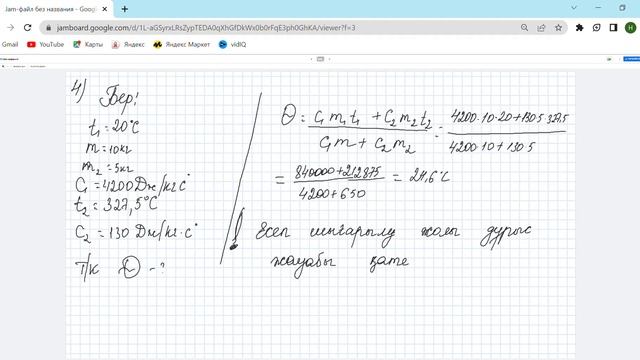 Jam-файл без названия - Google
jamboard.google.com/d/1L-aGSyrxLRsZypTEDA0qXhGfDkWx0b0rFqE3ph0GhKA/viewer?f=3
Gmail YouTube Карты Яндекс Яндекс Маркет vidIQ
4) Бер:
t₁ = 20°C
m = 10кг
m₂ = 5кг
C₁ = 4200 Дж/кг c°
t₂ = 327,5°C
C₂ = 130 Дж/кг·c°
Т/к Θ - ?
Θ = C₁ m₁ t₁ + C₂ m₂ t₂ / C₁ m + C₂ m₂ = 4200·10·20+130·5·327,5 / 4200·10+130·5
= 840000+212875 / 4200+650 = 24,6°C
! Есеп шығарылу жолы дұрыс
жауабы қате